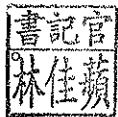 書記官
林佳蘋